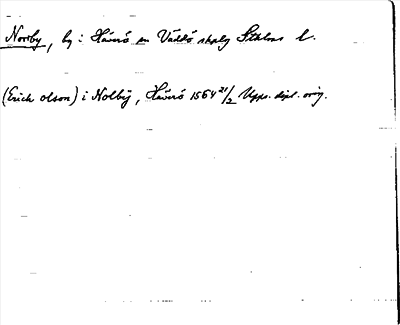 Norrby, by i Häverö sn Väddö skplg Sthlms l.
(Erich Olson) i Nolbÿ, Häverö 1564 21/2 Upps. dipl. orig.